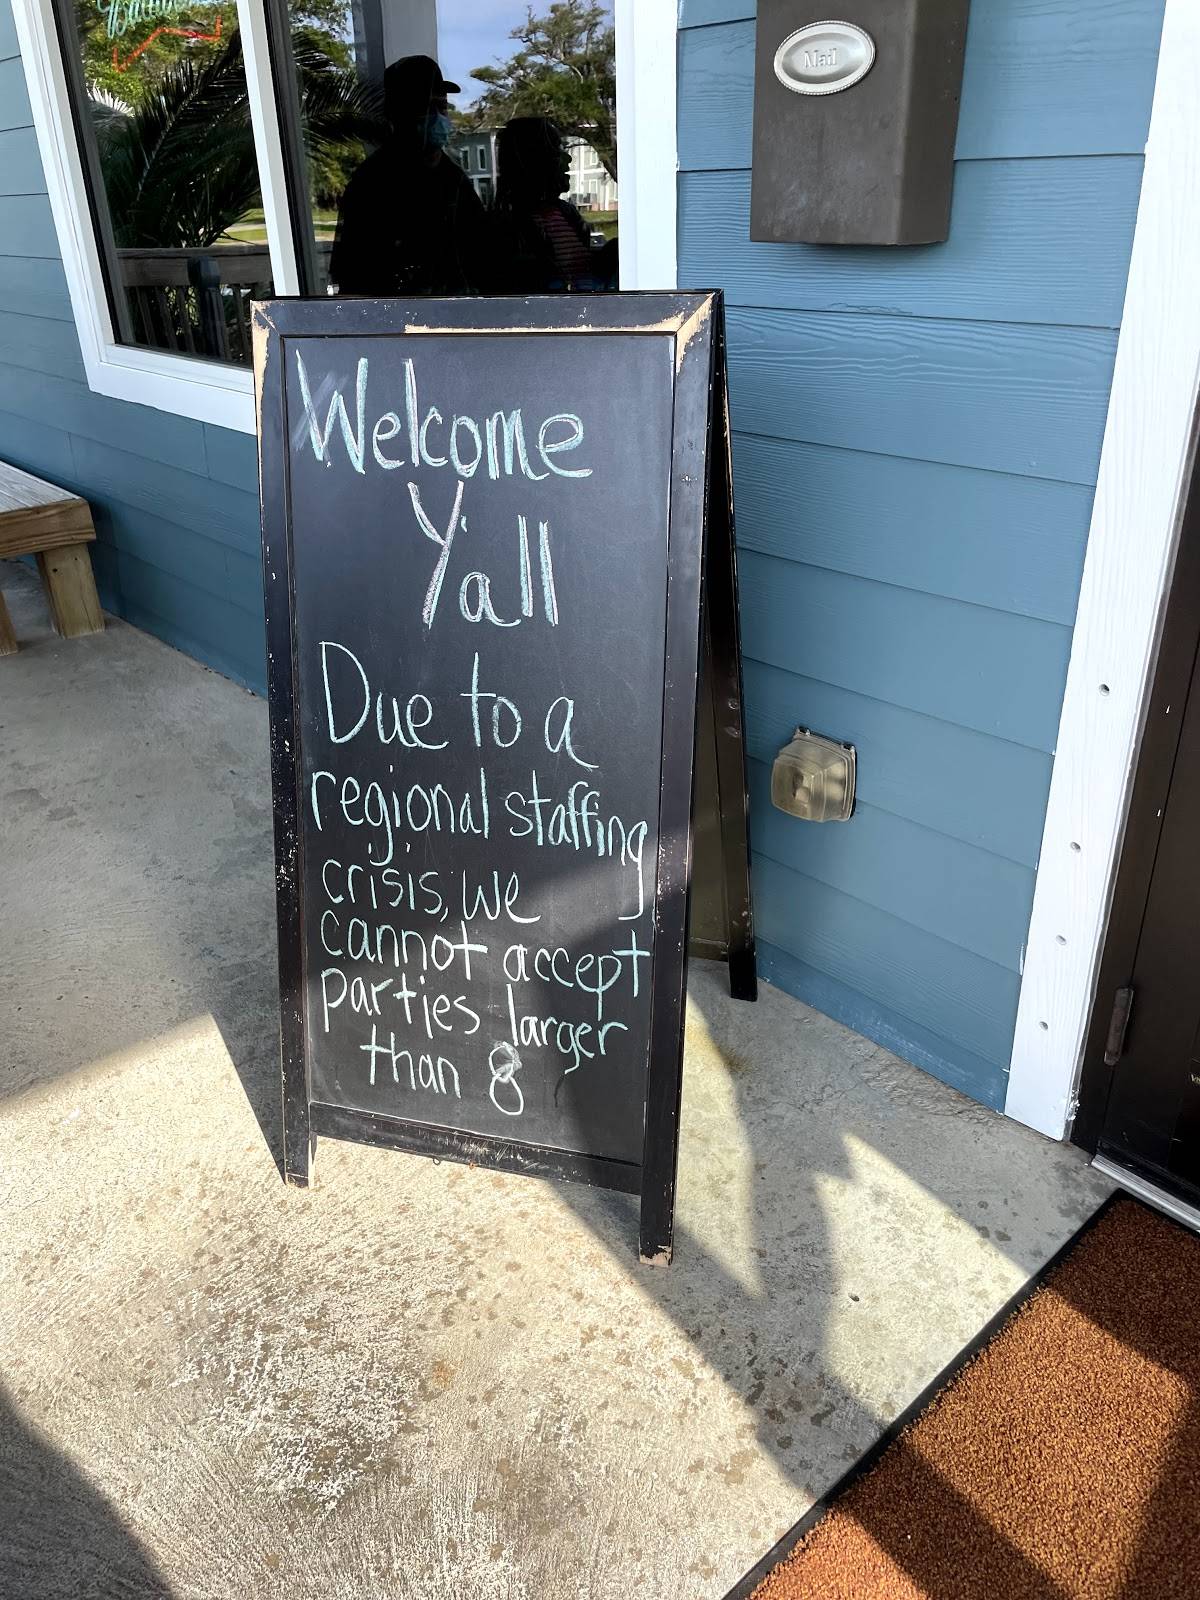 Mail
Welcome
Y'all
Due to a
regional staffing
crisis, we
cannot accept
parties larger
than 8